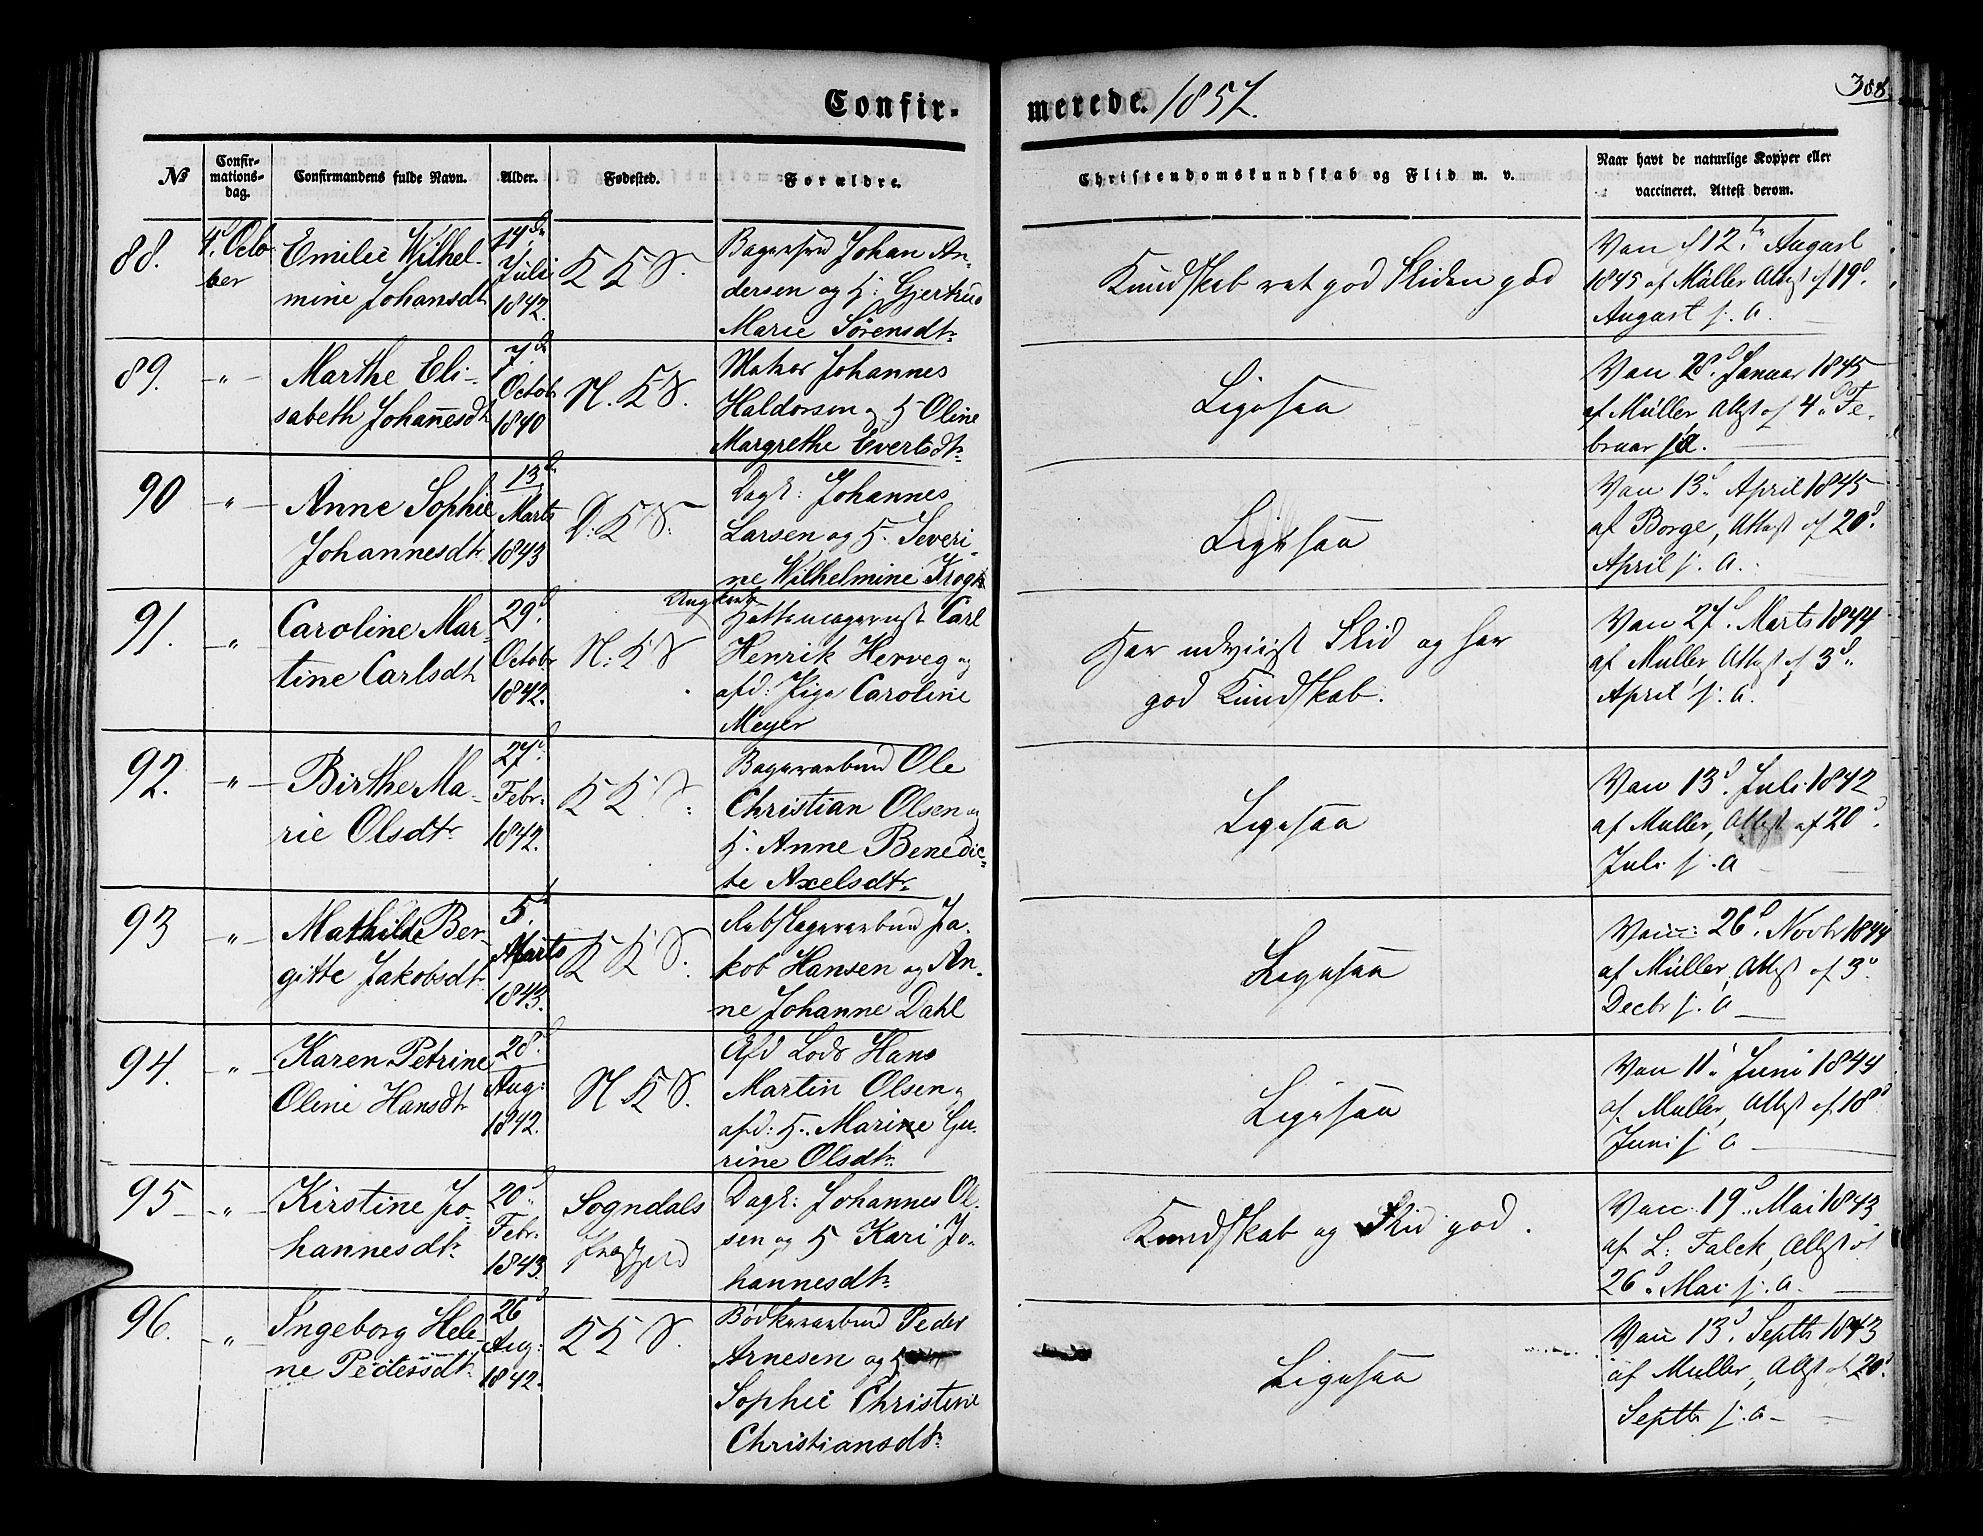 Confir-
merede. 1857.
308.
No
Confir-
mations-
dag.
Confirmandens fulde Navn.
Alder.
Fødested.
Forældre.
Christendomskundskab og Flid m. v.
Naar havt de naturlige Kopper eller
vaccineret. Attest derom.
88.
4d Octo
ber
Emilie Wilhel-
mine Johansdt
14de
Juli
1842.
K K S.
Johan An-
dersen og H: Gjertrud
Marie Sørensdtr
Kundskab ret god Fliden god
Vac d 12te August
1845 af Müller Attest af 19d
August s. a.
89.
-"-
Marthe Eli-
sabeth Johannesdt
7de
Octob
1840
N. K S.
Matros Johannes
Haldorsen og H Oline
Margrethe Evertsdtr
Ligesaa
Vac 28d Januar 1845
af Müller Attest af 4de Fe-
bruar s a.
90
-"-
Anne Sophie
Johannesdtr
13d
Marts
1843
D. K S.
Dagk: Johannes
Larsen og H. Severi-
ne Wilhelmine Krogh
Ligesaa
Vac 13d April 1845
af Borge, Attest af 20d
April s. a.
91.
-"-
Caroline Mar-
tine Carlsdt
29d
Octobr
1842.
N: K S
Ungkarl
Hattemagersvend Carl
Henrik Herveg og
afd: Pige Caroline
Meyer
Har udviist Flid og har
god Kundskab.
Vac 27d Marts 1844
af Müller, Attest af 3d
April s. a.
92.
-"-
Birthe Ma-
rie Olsdtr
27d
Febr.
1842.
K K S.
Ole
Christian Olsen og
H. Anne Benedic-
te Axelsdtr
Ligesaa
Vac 13d Juli 1842
af Müller, Attest af 20d
Juli s. a
93
-"-
Mathilde Ber-
gitte Jakobsdt
5d
Marts
1843.
K K S.
Ja-
kob Hansen og An-
ne Johanne Dahl
Ligesaa
Vacc: 26d Novbr 1844
af Müller, Attest af 3d
Decbr s. a
94.
-"-
Karen Petrine
Oline Hansdtr
28d
Aug:
1842.
N K S.
Afd Lods Hans
Martin Olsen og
afd: H. Marine Gu-
rine Olsdtr
Ligesaa
Vac 11d Juni 1844
af Müller, Attest af 18d
Juni s. a
95
-"-
Kirstine Jo-
hannesdtr
20d
Febr.
1843.
Sogndals
Præstgjeld
Dagk: Johannes Ol-
sen og H Kari Jo-
hannesdtr
Kundskab og Flid god.
Vac 19d Mai 1843
af L: Falck, Attest af
26d Mai s. a.
96.
-"-
Ingeborg Hele-
ne Pedersdt
26d
Aug:
1842.
K K S.
Bødkerarbeid Peder
Arnesen og H
Sophie Christine
Christiansdtr
Ligesaa
Vac 13d Septbr 1843
af Müller, Attest af 20d
Septbr s. a